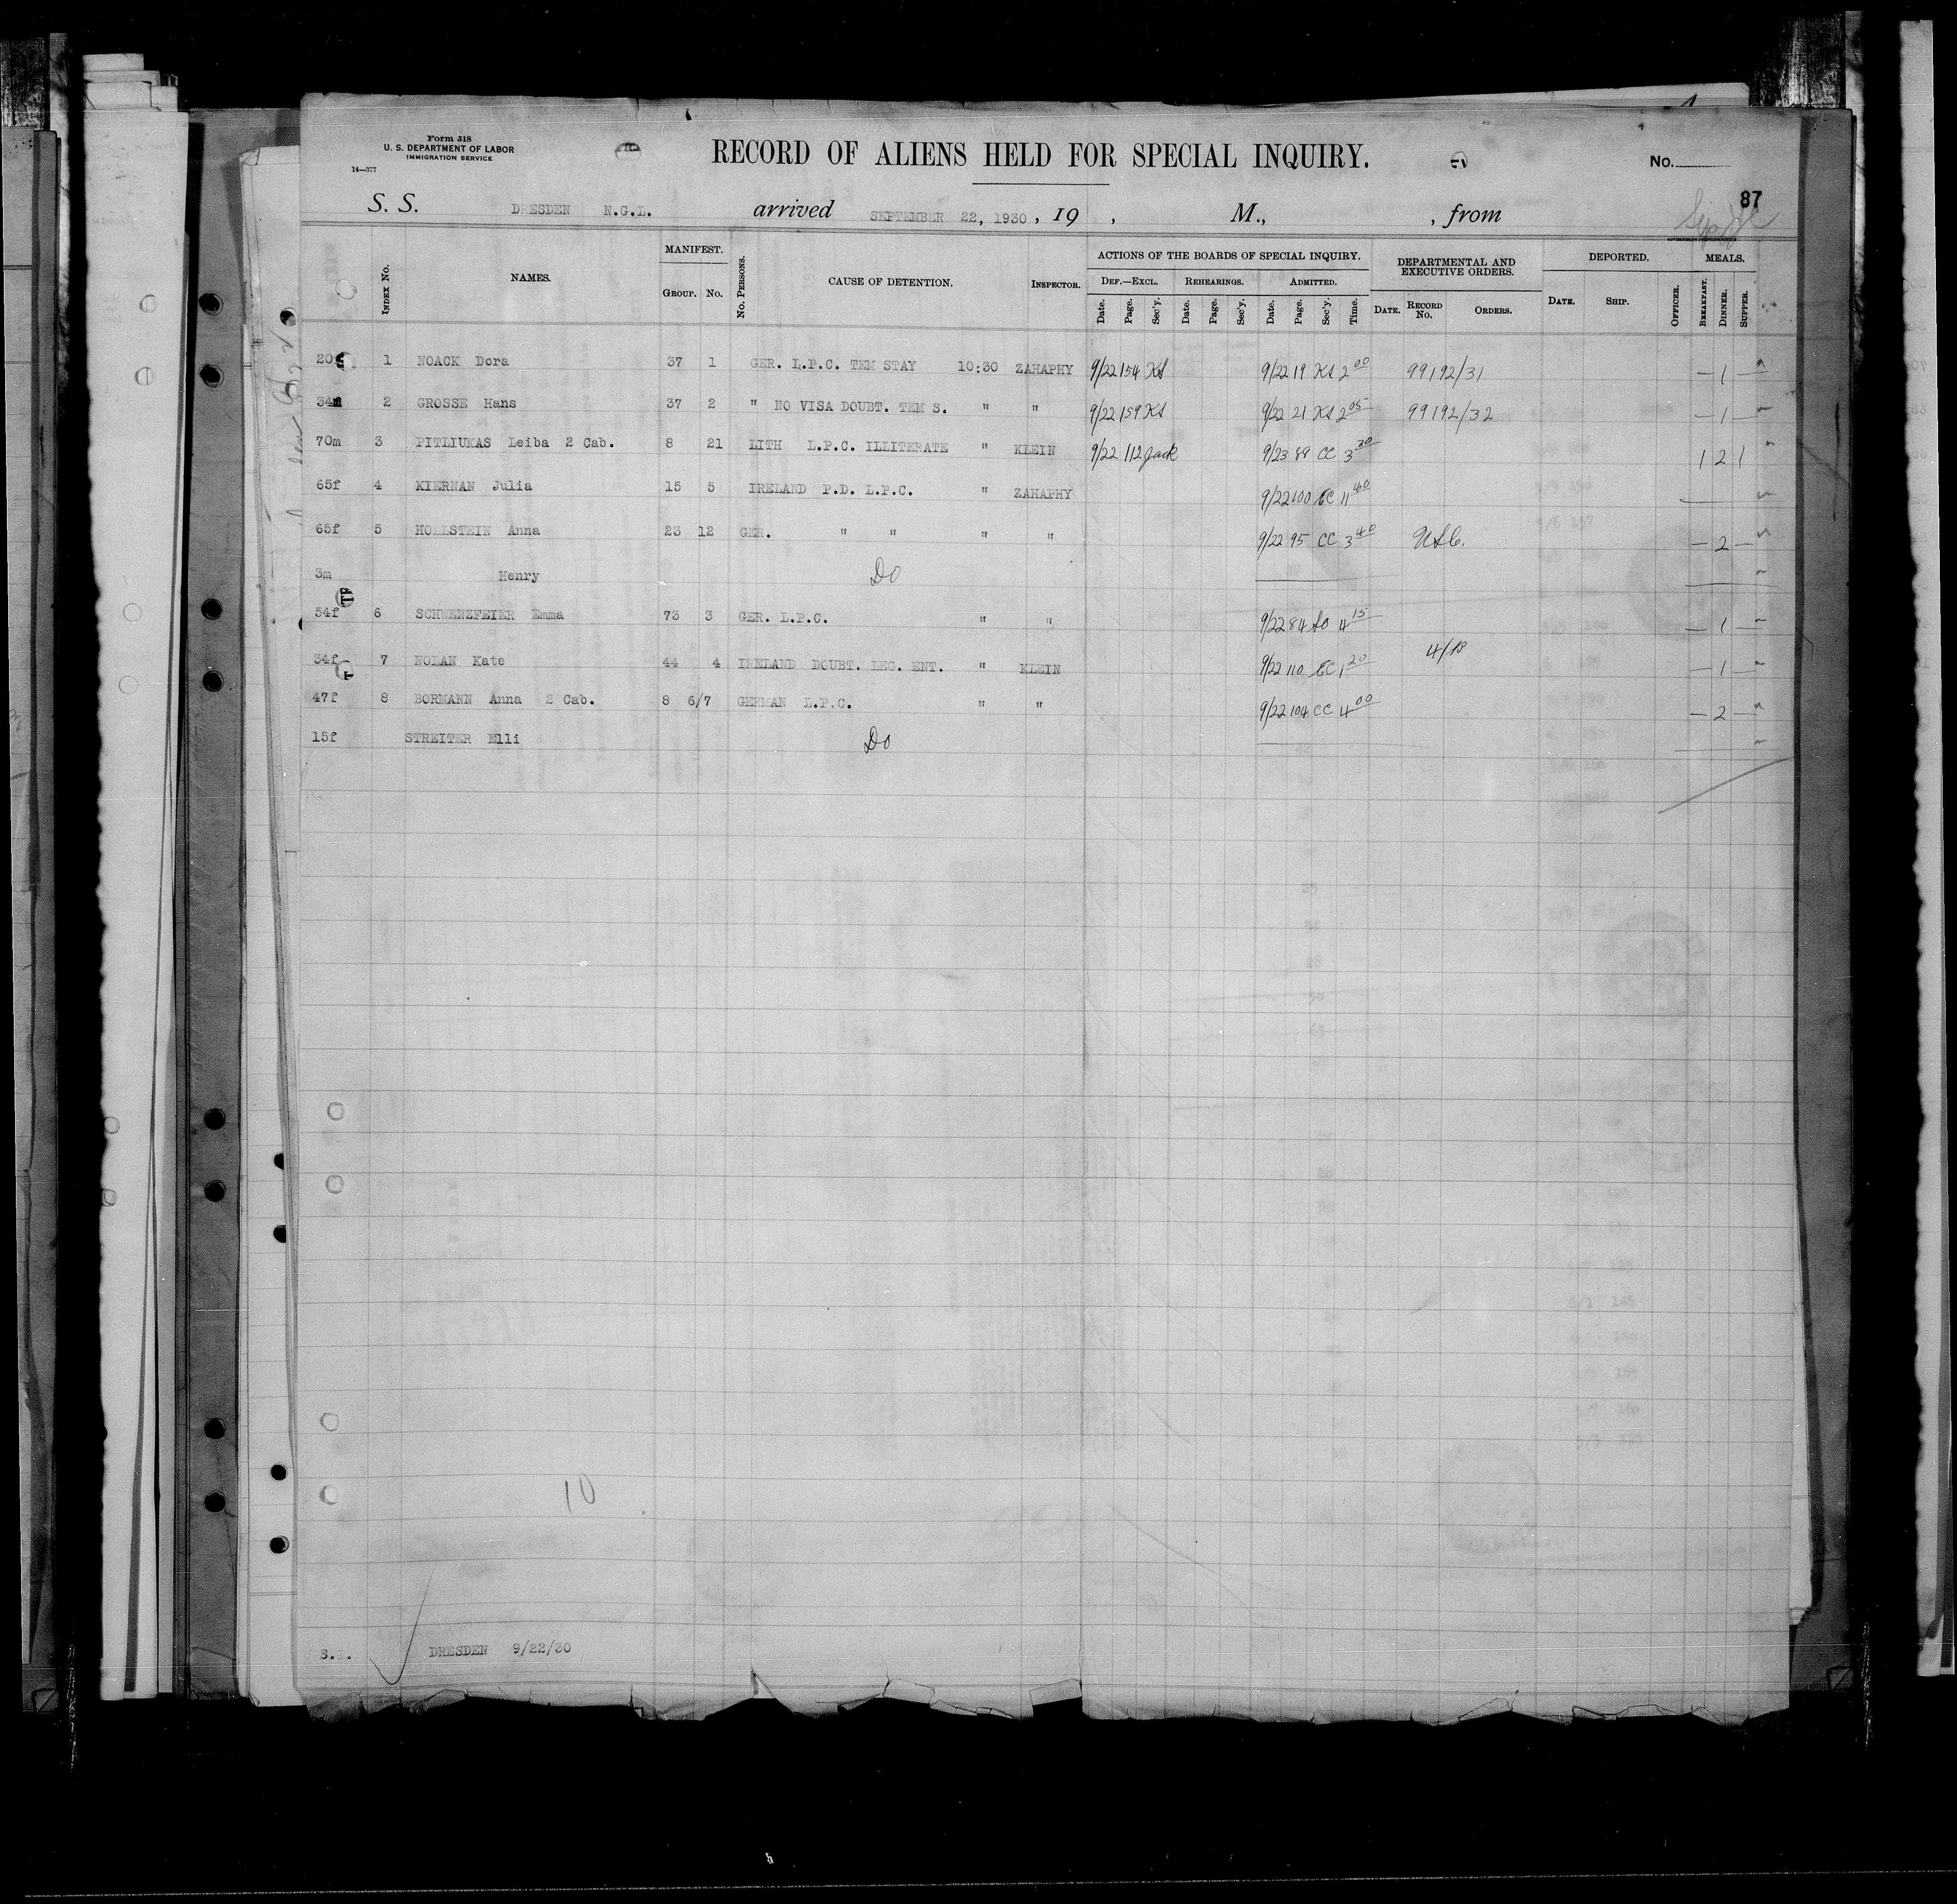 Form 518
U. S. DEPARTMENT OF LABOR
IMMIGRATION SERVICE
14—377
RECORD OF ALIENS HELD FOR SPECIAL INQUIRY.
No.
87
S. S. DRESDEN N.G.L. arrived SEPTEMBER 22, 1930 , 19 , M., , from
INDEX No. NAMES. MANIFEST. GROUP. No. No. PERSONS. CAUSE OF DETENTION. INSPECTOR. ACTIONS OF THE BOARDS OF SPECIAL INQUIRY. DEF.—EXCL. Date. Page. Sec'y. REHEARINGS. Date. Page. Sec'y. ADMITTED. Date. Page. Sec'y. Time. DEPARTMENTAL AND EXECUTIVE ORDERS. DATE. RECORD No. ORDERS. DEPORTED. DATE. SHIP. OFFICER. MEALS. BREAKFAST. DINNER. SUPPER.
20f 1 NOACK Dora 37 1 GER. L.P.C. TEM STAY 10:30 ZAHAPHY 9/22 154 KS 9/22 19 KS 2 00 99192/31 — 1 —
34m 2 GROSSE Hans 37 2 " NO VISA DOUBT. TEM S. " " 9/22 159 KS 9/22 21 KS 2 05 99192/32 — 1 —
70m 3 PITLIUKAS Leiba 2 Cab. 8 21 LITH L.P.C. ILLITERATE " KLEIN 9/22 112 Jack 9/23 89 CC 3 30 1 2 1
65f 4 KIERNAN Julia 15 5 IRELAND P.D. L.P.C. " ZAHAPHY 9/22 100 EC 11 40
65f 5 HOLLSTEIN Anna 23 12 GER. " " " " 9/22 95 CC 3 40 — 2 —
3m Henry Do
54f 6 SCHWENZFEIER Emma 73 3 GER. L.P.C. " " 9/22 84 SO 4 15 — 1 —
34f 7 NOLAN Kate 44 4 IRELAND DOUBT. LEG. ENT. " KLEIN 9/22 110 EC 1 20 — 1 —
47f 8 BORMANN Anna 2 Cab. 8 6/7 GERMAN L.P.C. " " 9/22 104 CC 4 00 — 2 —
15f STREITER Elli Do
10
S.I. DRESDEN 9/22/30